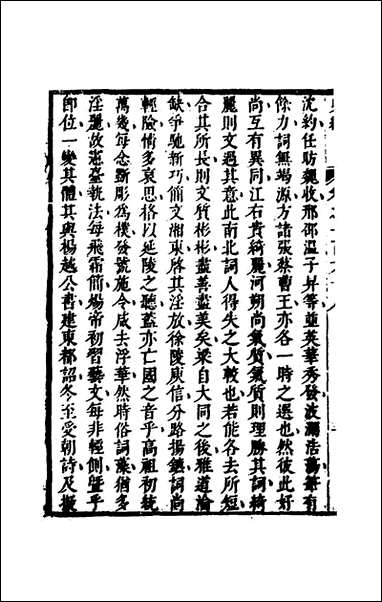 沈約任昉魏收邢邵溫子昇等並英華秀發波瀾浩蕩筆有
餘力詞無竭源方諸張蔡曹王亦各一時之選也然彼此好
尚互有異同江右貴綺麗河朔尚氣質氣質則理勝其詞綺
麗則文過其意此南北詞人得失之大較也若能各去所短
合其所長則文質彬彬盡善盡美矣梁自大同之後雅道淪
缺爭馳新巧簡文湘東啓其淫放徐陵庾信分路揚鑣詞尚
輕險情多哀思格以延陵之聽蓋亦亡國之音乎高祖初統
萬幾每念斲彫為樸發號施令咸去浮華然時俗詞藻猶多
淫麗故憲臺執法每飛霜簡煬帝初習藝文每非輕側曁乎
即位一變其體其與楊越公書建東都詔冬至受朝詩及擬